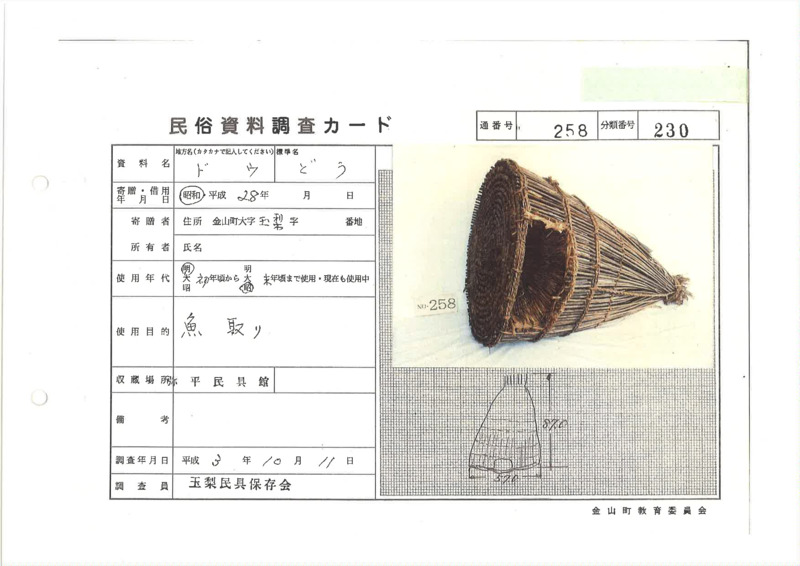 民俗資料調査カード
通番号 258 分類番号 230
資料名 地方名(カタカナで記入してください) ドウ 標準名 どう
寄贈・借用年月日 昭和・平成 28年 月 日
寄贈者 住所 金山町大字玉梨字 番地
所有者 氏名
使用年代 明大昭 初年頃から 明大昭 末年頃まで使用・現在も使用中
使用目的 魚取り
収蔵場所 平民具館
備考
調査年月日 平成 3 年 10 月 11 日
調査員 玉梨民具保存会
NO. 258
87.0
57.0
金山町教育委員会